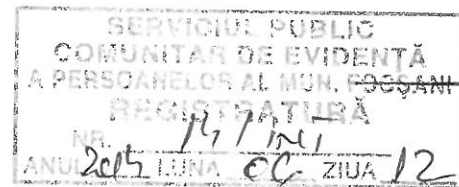 SERVICIUL PUBLIC
COMUNITAR DE EVIDENȚĂ
A PERSOANELOR AL MUN. FOCȘANI
REGISTRATURĂ
NR.
ANUL LUNA ZIUA 12